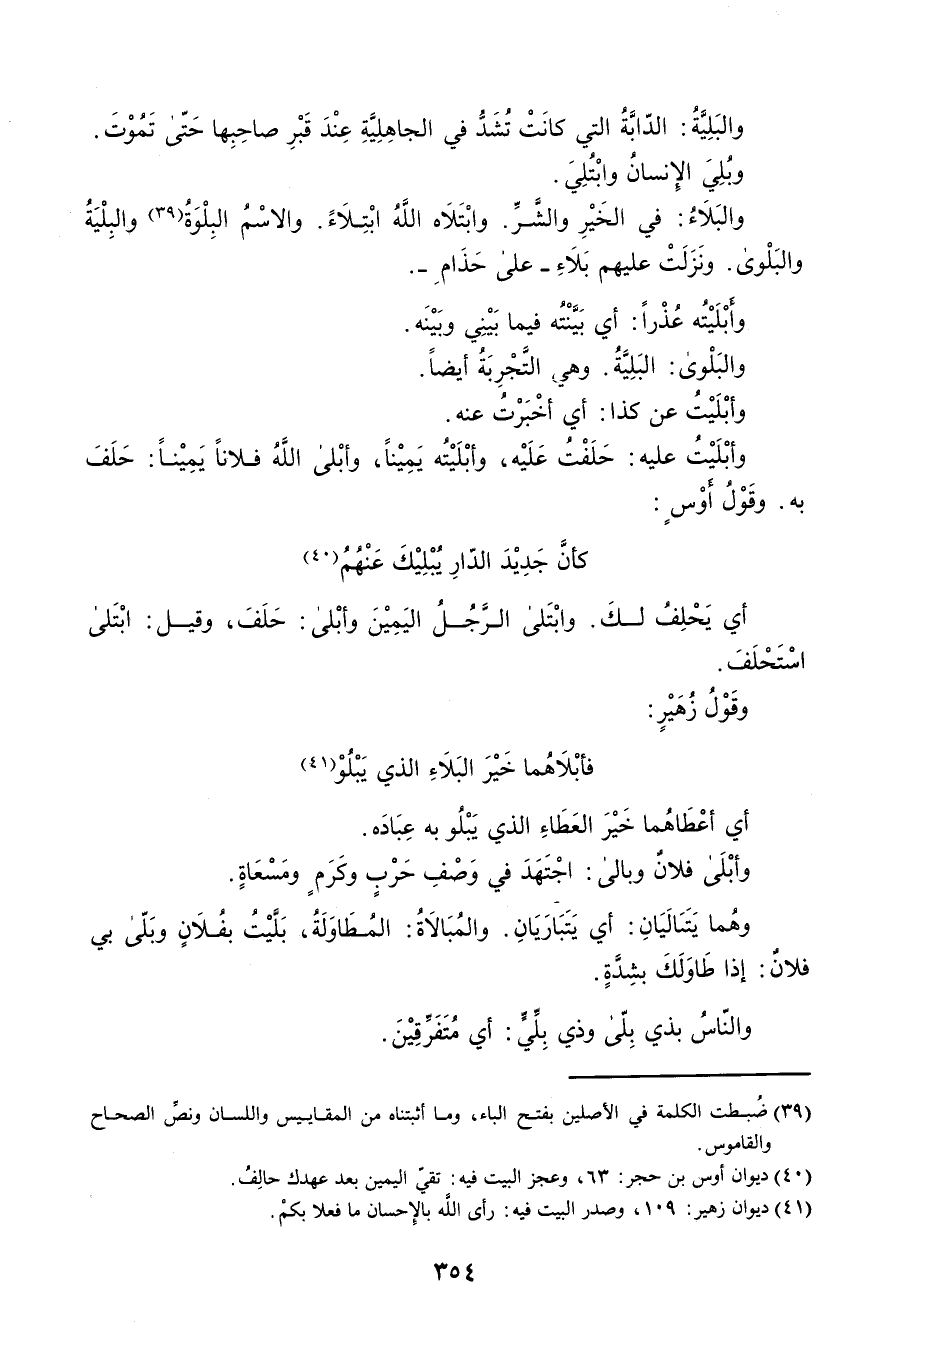 والبَلِيَّةُ: الدّابَّةُ التي كانَتْ تُشَدُّ في الجاهِلِيَّةِ عِنْدَ قَبْرِ صاحِبِها حَتّىٰ تَمُوْتَ.
وبُلِيَ الإِنسانُ وابْتُلِيَ.
والبَلَاءُ: في الخَيْرِ والشَّرِّ. وابْتَلَاه اللَّهُ ابْتِلَاءً. والاسْمُ البِلْوَةُ(٣٩) والبِلْيَةُ
والبَلْوىٰ. ونَزَلَتْ عليهم بَلَاءِ - علىٰ حَذَامِ -.
وأَبْلَيْتُه عُذْراً: أي بَيَّنْتُه فيما بَيْنِي وبَيْنَه.
والبَلْوىٰ: البَلِيَّةُ. وهي التَّجْرِبَةُ أيضاً.
وأبْلَيْتُ عن كذا: أي أخْبَرْتُ عنه.
وأبْلَيْتُ عليه: حَلَفْتُ عَلَيْه، وأبْلَيْتُه يَمِيْناً، وأبْلىٰ اللَّهُ فلاناً يَمِيْناً: حَلَفَ
به. وقَوْلُ أَوْسٍ:
كأنَّ جَدِيْدَ الدّارِ يُبْلِيْكَ عَنْهُمُ(٤٠)
أي يَحْلِفُ لكَ. وابْتَلىٰ الرَّجُلُ اليَمِيْنَ وأبْلىٰ: حَلَفَ، وقيل: ابْتَلىٰ
اسْتَحْلَفَ.
وقَوْلُ زُهَيْرٍ:
فأبْلَاهُما خَيْرَ البَلَاءِ الذي يَبْلُوْ(٤١)
أي أعْطَاهُما خَيْرَ العَطَاءِ الذي يَبْلُو به عِبَادَه.
وأبْلَىٰ فلانٌ وبالىٰ: اجْتَهَدَ في وَصْفِ حَرْبٍ وكَرَمٍ ومَسْعَاةٍ.
وهُما يَتَبَالَيَانِ: أي يَتَبَارَيَانِ. والمُبَالَاةُ: المُطَاوَلَةُ، بَلَّيْتُ بفُلَانٍ وبَلّىٰ بي
فلانٌ: إذا طَاوَلَكَ بشِدَّةٍ.
والنّاسُ بذي بِلّىٰ وذي بِلِّيٍّ: أي مُتَفَرِّقِيْنَ.
(٣٩) ضُبطت الكلمة في الأصلين بفتح الباء، وما أثبتناه من المقاييس واللسان ونصِّ الصحاح
والقاموس.
(٤٠) ديوان أوس بن حجر: ٦٣، وعجز البيت فيه: تقيّ اليمين بعد عهدك حالفُ.
(٤١) ديوان زهير: ١٠٩، وصدر البيت فيه: رأى اللَّه بالإِحسان ما فعلا بكمْ.
٣٥٤